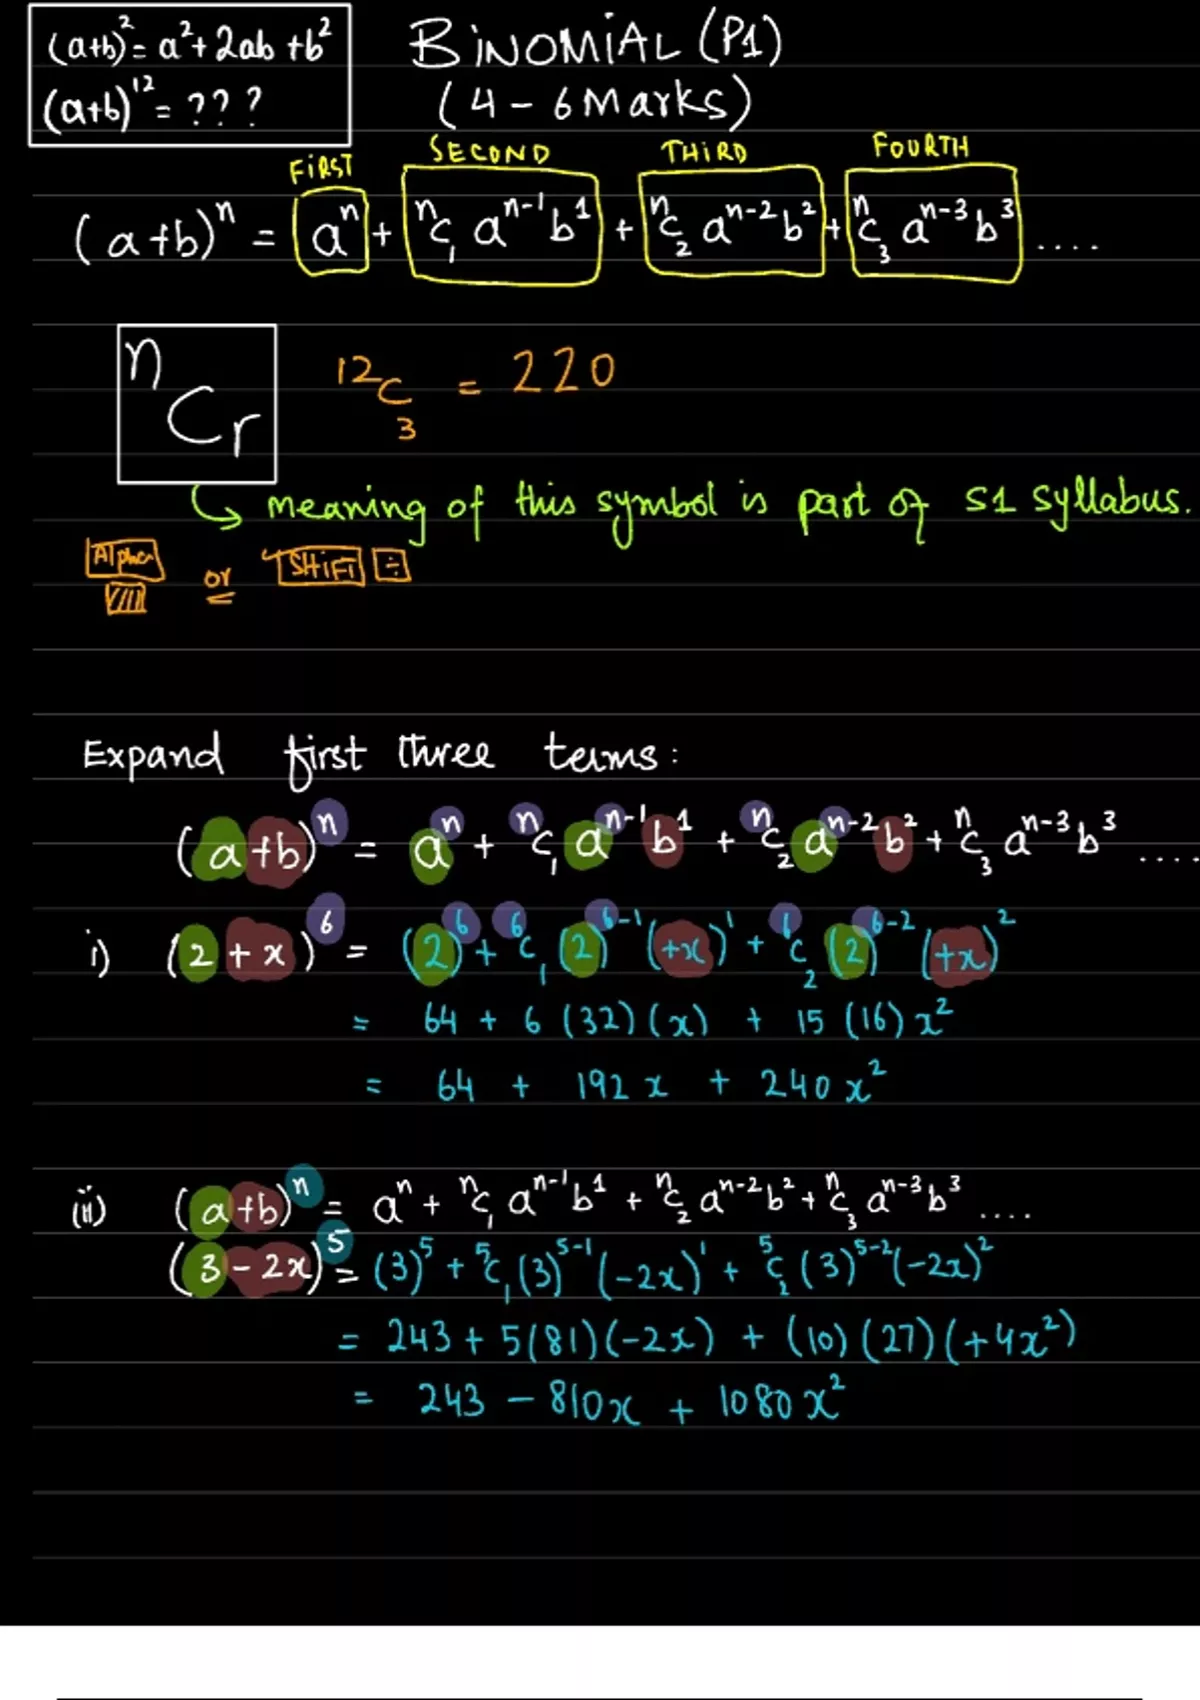 (a+b)² = a² + 2ab + b²
(a+b)¹² = ???
BINOMIAL (P1)
(4 - 6 Marks)
FIRST SECOND THIRD FOURTH
(a+b)ⁿ = aⁿ + ⁿC₁ aⁿ⁻¹b¹ + ⁿC₂ aⁿ⁻²b² + ⁿC₃ aⁿ⁻³b³ ....
ⁿCᵣ
¹²C₃ = 220
↳ meaning of this symbol is part of S1 syllabus.
Alpha or SHIFT ÷
Expand first three terms:
(a+b)ⁿ = aⁿ + ⁿC₁ aⁿ⁻¹b¹ + ⁿC₂ aⁿ⁻²b² + ⁿC₃ aⁿ⁻³b³ ....
i) (2+x)⁶ = (2)⁶ + ⁶C₁ (2)⁶⁻¹ (+x)¹ + ⁶C₂ (2)⁶⁻² (+x)²
= 64 + 6 (32)(x) + 15 (16) x²
= 64 + 192x + 240x²
(ii) (a+b)ⁿ = aⁿ + ⁿC₁ aⁿ⁻¹b¹ + ⁿC₂ aⁿ⁻²b² + ⁿC₃ aⁿ⁻³b³ ....
(3-2x)⁵ = (3)⁵ + ⁵C₁ (3)⁵⁻¹ (-2x)¹ + ⁵C₂ (3)⁵⁻² (-2x)²
= 243 + 5(81)(-2x) + (10)(27)(+4x²)
= 243 - 810x + 1080x²